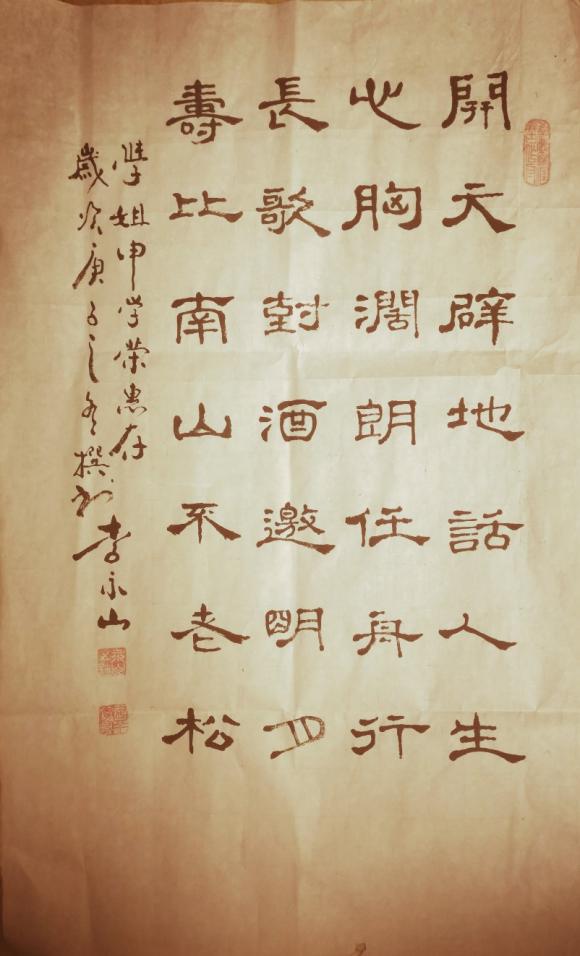 開天辟地話人生
心胸濶朗任舟行
長歌對酒邀明月
壽比南山不老松
學姐申学荣惠存
歲次庚子之冬撰 李永山